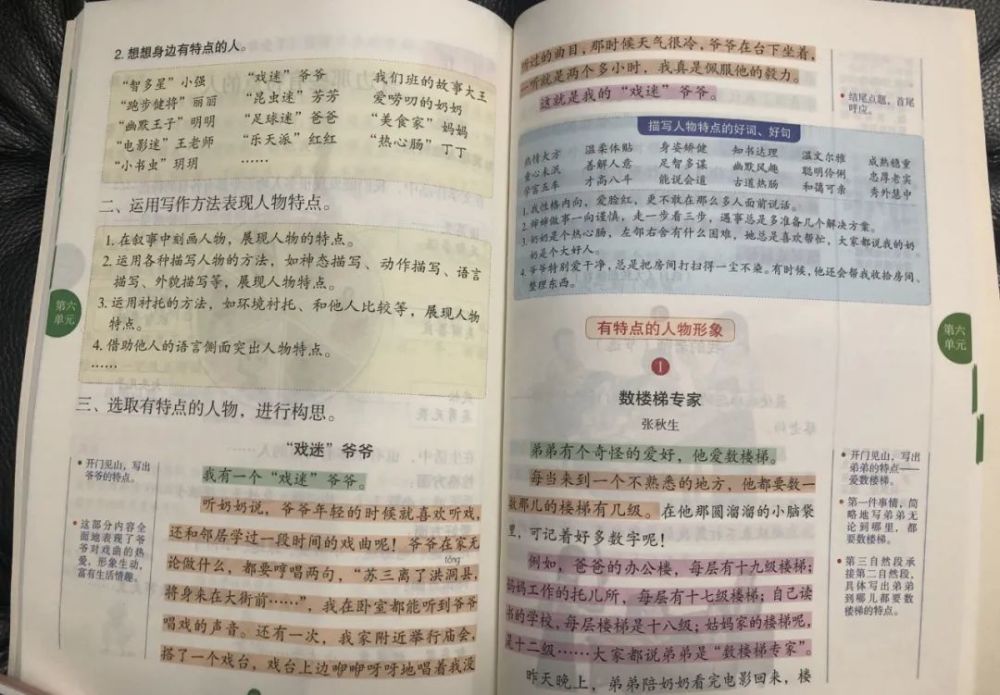 2. 想想身边有特点的人。
“智多星”小强 “戏迷”爷爷 我们班的故事大王
“跑步健将”丽丽 “昆虫迷”芳芳 爱唠叨的奶奶
“幽默王子”明明 “足球迷”爸爸 “美食家”妈妈
“电影迷”王老师 “乐天派”红红 “热心肠”丁丁
“小书虫”玥玥 ……
二、运用写作方法表现人物特点。
1. 在叙事中刻画人物，展现人物的特点。
2. 运用各种描写人物的方法，如神态描写、动作描写、语言
描写、外貌描写等，展现人物特点。
3. 运用衬托的方法，如环境衬托、和他人比较等，展现人物
特点。
4. 借助他人的语言侧面突出人物特点。
……
第六
单元
三、选取有特点的人物，进行构思。
“戏迷”爷爷
开门见山，写出
爷爷的特点。
这部分内容全
面地表现了爷
爷对戏曲的热
爱，形象生动，
富有生活情趣。
我有一个“戏迷”爷爷。
听奶奶说，爷爷年轻的时候就喜欢听戏，
还和邻居学过一段时间的戏曲呢！爷爷在家无
论做什么，都要哼唱两句，“苏三离了洪洞县，
tóng
将身来在大街前……”，我在卧室都能听到爷爷
唱戏的声音。还有一次，我家附近举行庙会，
搭了一个戏台，戏台上边咿咿呀呀地唱着我没
听过的曲目，那时候天气很冷，爷爷在台下坐着，
一听就是两个多小时，我真是佩服他的毅力。
这就是我的“戏迷”爷爷。
结尾点题，首尾
呼应。
描写人物特点的好词、好句
热情大方 温柔体贴 身姿矫健 知书达理 温文尔雅 成熟稳重
童心未泯 善解人意 足智多谋 幽默风趣 聪明伶俐 忠厚老实
学富五车 才高八斗 能说会道 古道热肠 和蔼可亲 秀外慧中
1. 我性格内向，爱脸红，更不敢在那么多人面前说话。
2. 婶婶做事一向谨慎，走一步看三步，遇事总是多准备几个解决方案。
3. 奶奶是个热心肠，左邻右舍有什么困难，她总是喜欢帮忙，大家都说我的奶
奶是个大好人。
4. 爷爷特别爱干净，总是把房间打扫得一尘不染。有时候，他还会帮我收拾房间、
整理东西。
有特点的人物形象
1
数楼梯专家
张秋生
弟弟有个奇怪的爱好，他爱数楼梯。
每当来到一个不熟悉的地方，他都要数一
数那儿的楼梯有几级。在他那圆溜溜的小脑袋
里，可记着好多数字呢！
例如，爸爸的办公楼，每层有十九级楼梯；
妈妈工作的托儿所，每层有十七级楼梯；自己读
书的学校，每层楼梯是十八级；姑妈家的楼梯呢，
是十二级……大家都说弟弟是“数楼梯专家”。
昨天晚上，弟弟陪奶奶看完电影回来，楼
开门见山，写出
弟弟的特点——
爱数楼梯。
第一件事情，简
略地写弟弟无
论到哪里，都
要数楼梯。
第三自然段承
接第二自然段，
具体写出弟弟
到哪儿都要数
楼梯的特点。
第六
单元